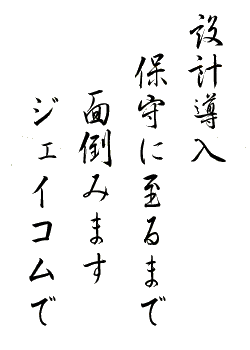 設計導入
保守に至るまで
面倒みます
ジェイコムで